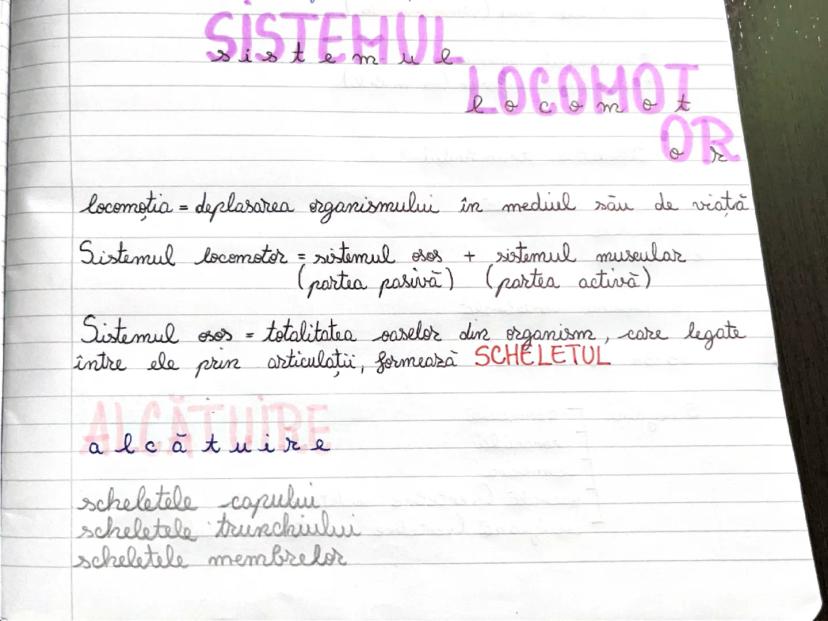 SISTEMUL
sistemul
LOCOMOT
locomot
OR
or
locomoția = deplasarea organismului în mediul său de viață
Sistemul locomotor = sistemul osos + sistemul muscular
(partea pasivă) (partea activă)
Sistemul osos = totalitatea oaselor din organism, care legate
între ele prin articulații, formează SCHELETUL
ALCĂTUIRE
alcătuire
scheletele capului
scheletele trunchiului
scheletele membrelor